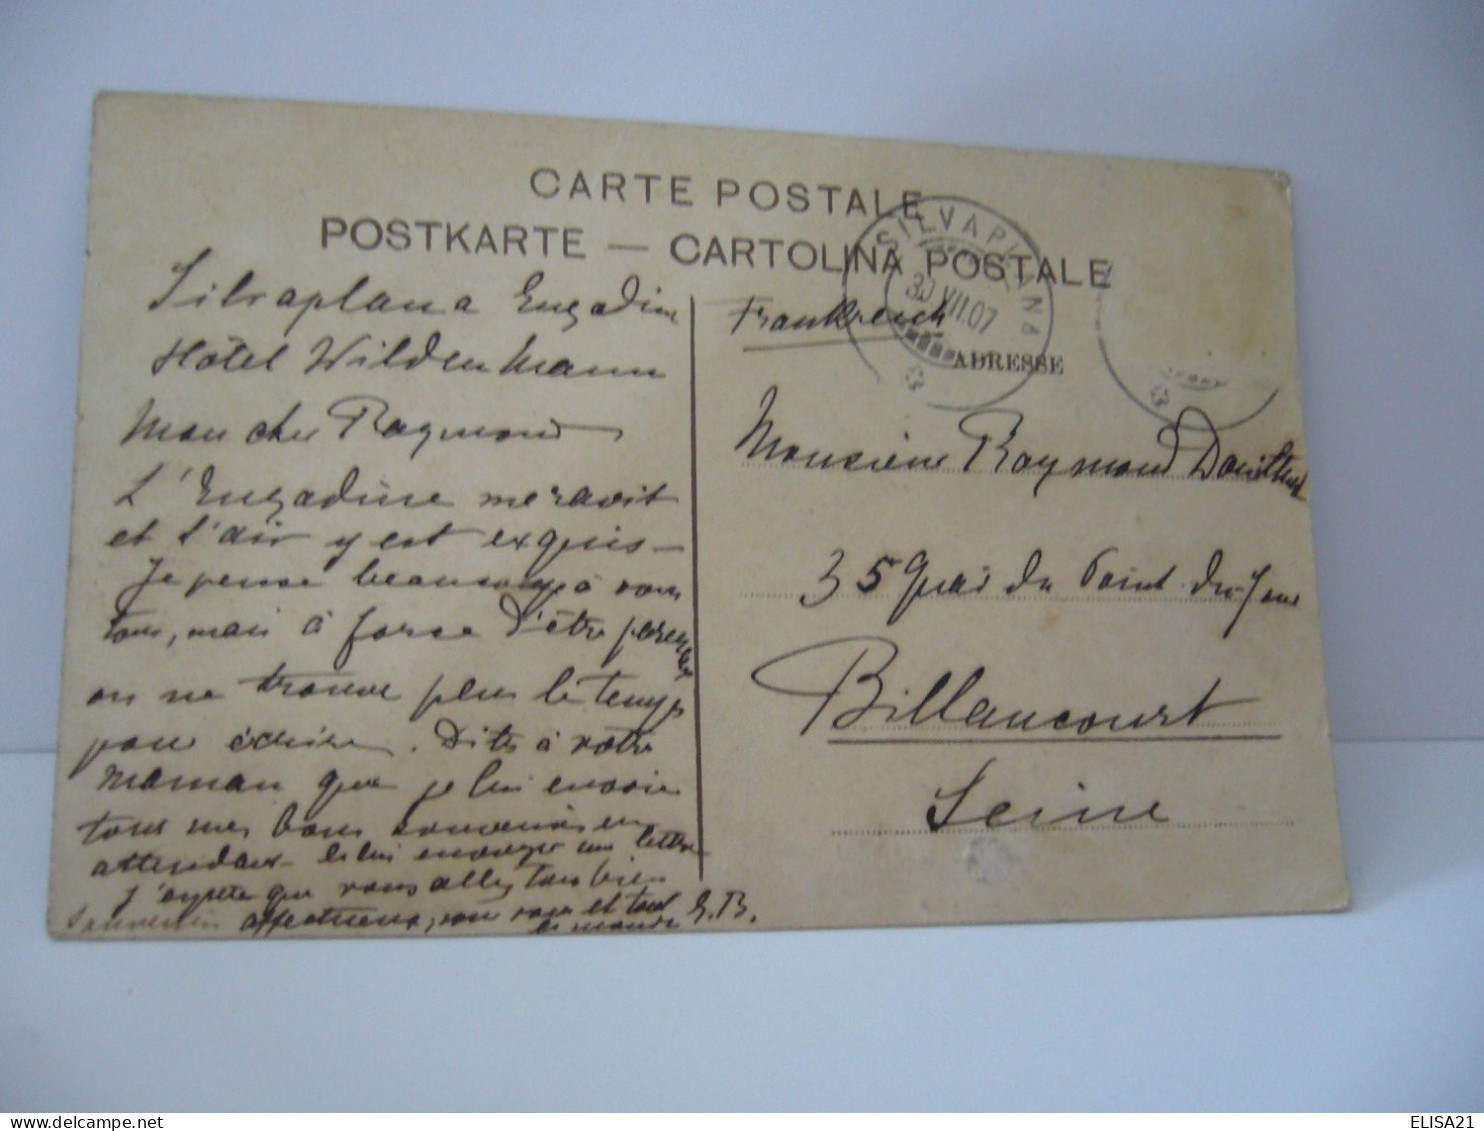 CARTE POSTALE
POSTKARTE — CARTOLINA POSTALE
SILVAPLANA
30.VII.07
Silvaplana Engadine
Hôtel Wilden Mann
Mon cher Raymond
L'Engadine me ravit
et l'air y est exquis —
Je pense beaucoup à vous
tous, mais à force d'être paresseux
on ne trouve plus le temps
pour écrire. Dites à votre
maman que je lui envoie
tous mes bons souvenirs en
attendant de lui envoyer une lettre
J'espère que vous allez tous bien
Souvenirs affectueux, pour vous et tout
le monde G.B.
Frankreich
ADRESSE
Monsieur Raymond
35 Quai du Point-du-Jour
Billancourt
Seine
ELISA21